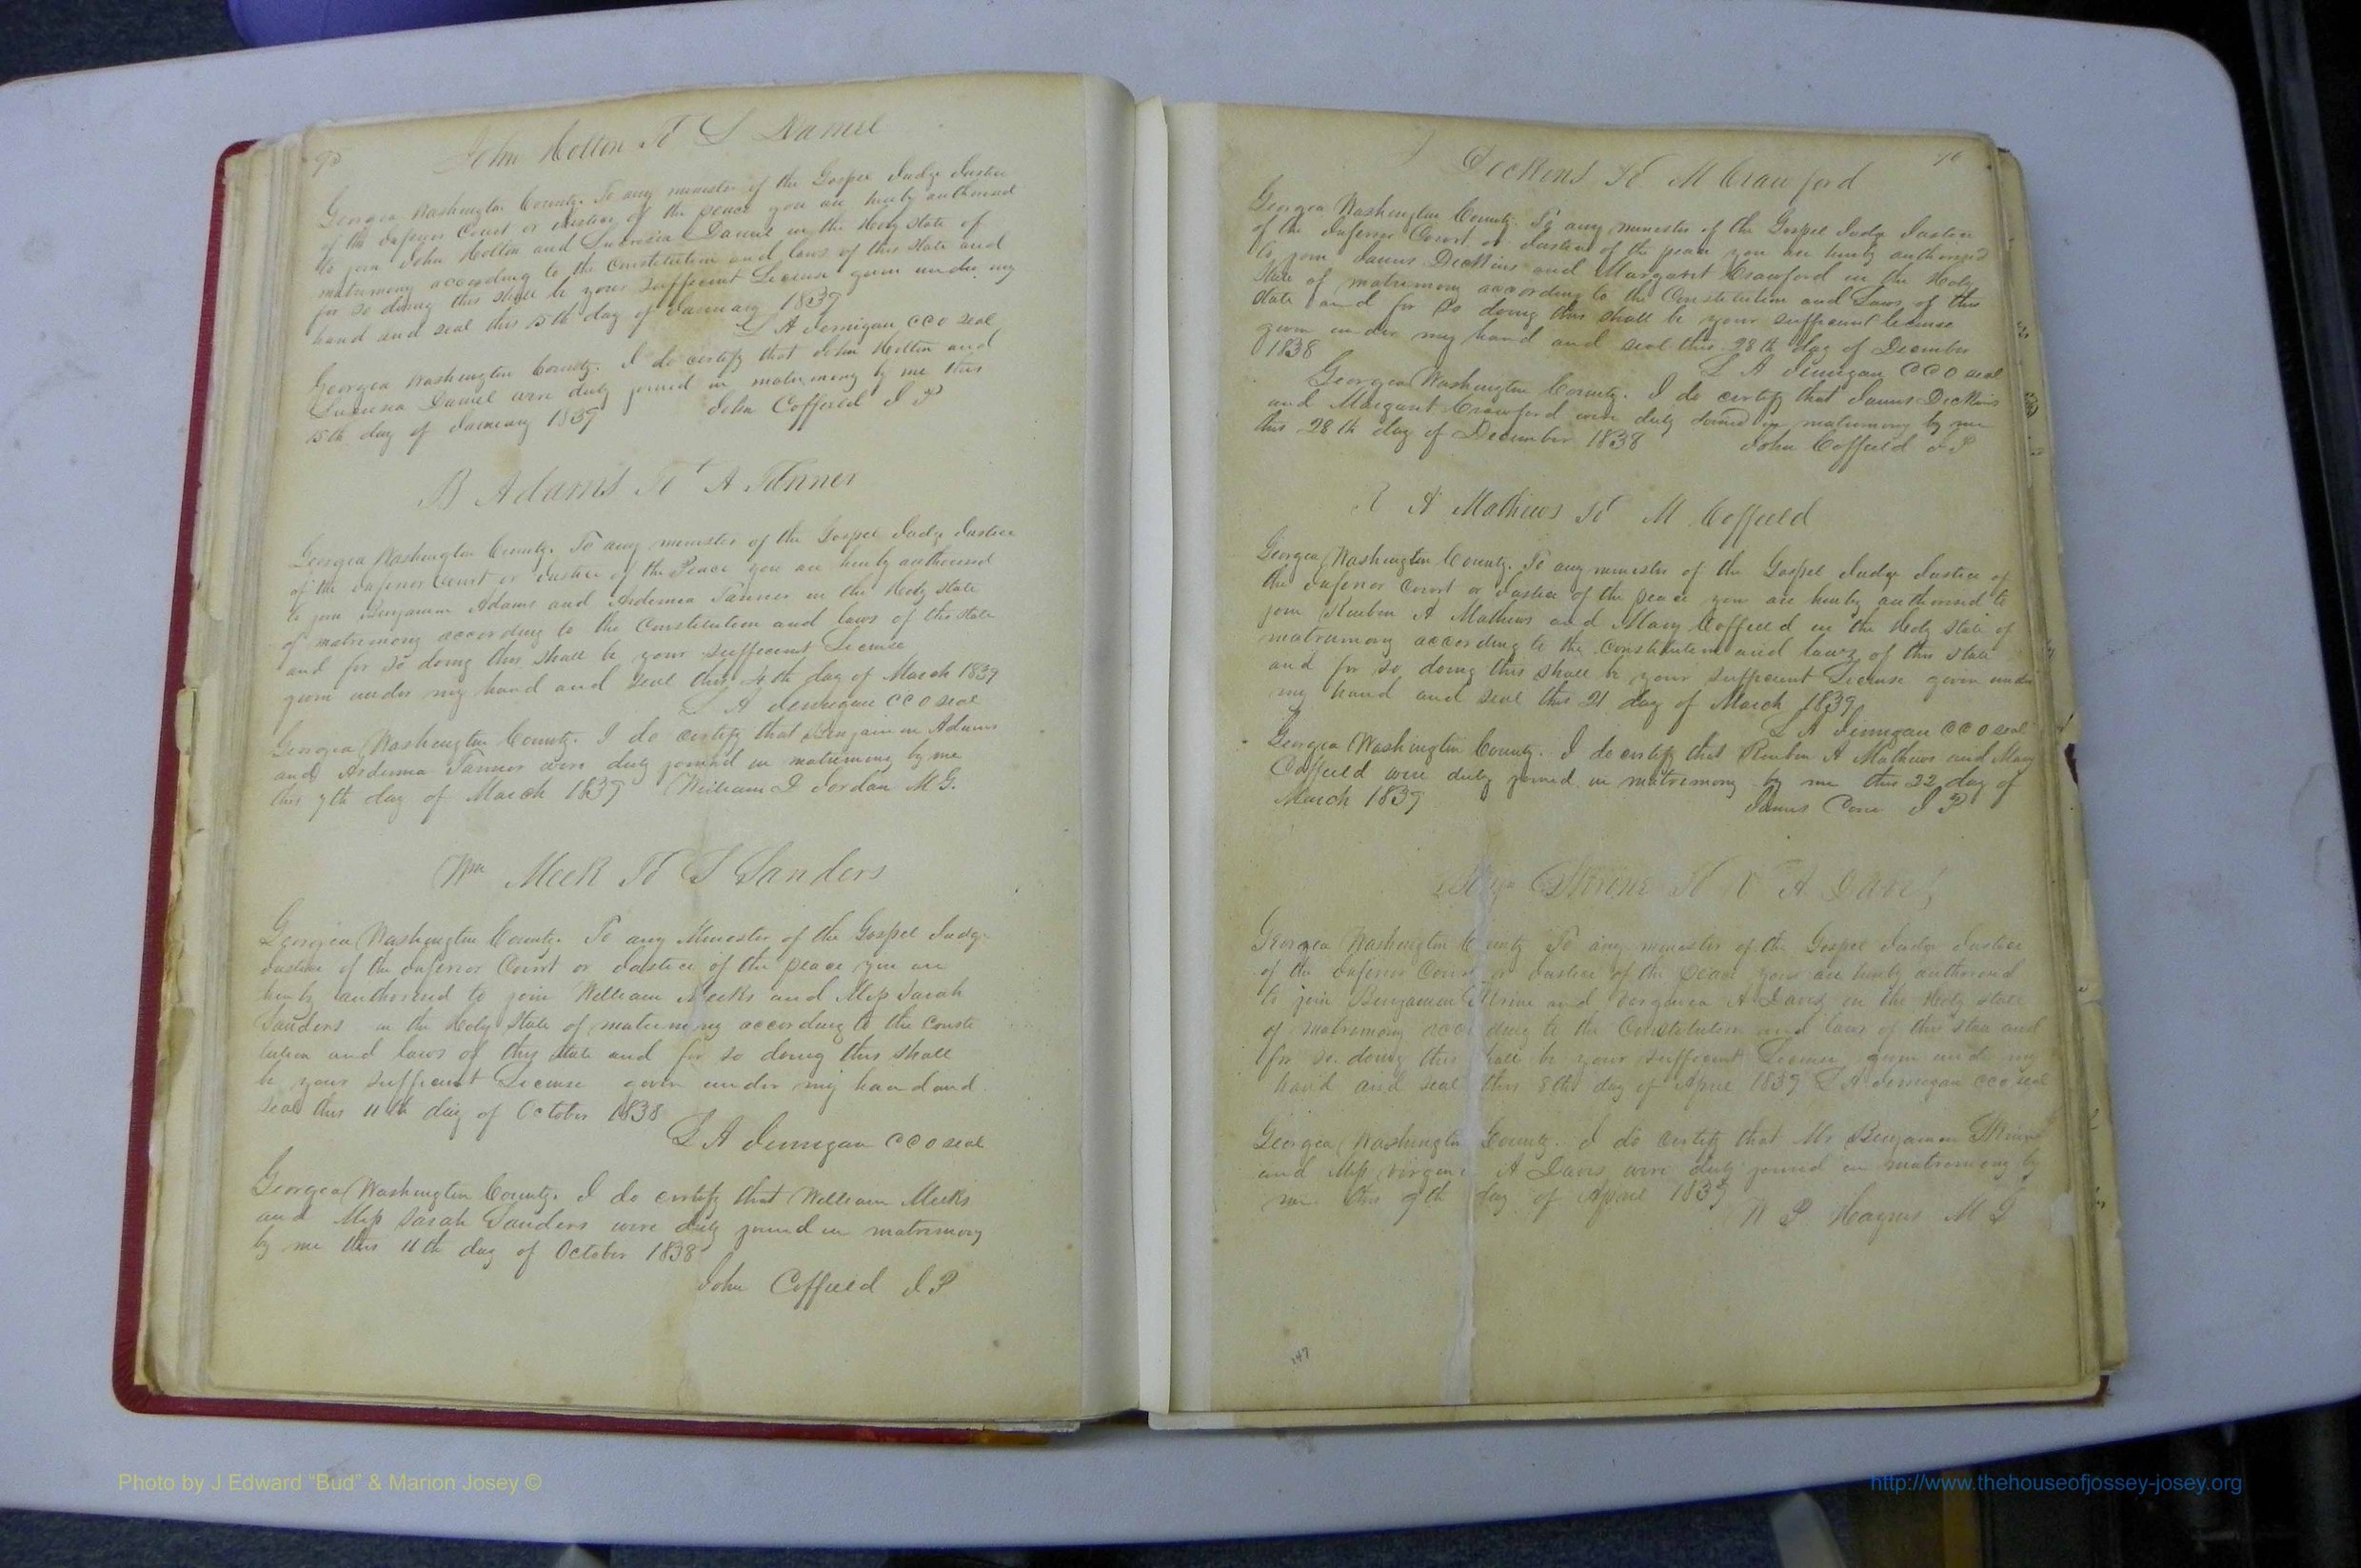 John Holton To L Daniel
Georgia Washington County. To any minister of the Gospel Judge Justice
of the Inferior Court or Justice of the peace you are hereby authorised
to join John Holton and Lucresia Daniel in the Holy State of
matrimony according to the Constitution and laws of this State and
for so doing this shall be your sufficient License given under my
hand and seal this 15th day of January 1839
L A Jernigan CCO seal
Georgia Washington County. I do certify that John Holton and
Lucresia Daniel were duly joined in matrimony by me this
15th day of January 1839 John Coffield J P
B Adams To A Tanner
Georgia Washington County. To any minister of the Gospel Judge Justice
of the Inferior Court or Justice of the Peace you are hereby authorised
to join Benjamin Adams and Ardemia Tanner in the Holy State
of matrimony according to the Constitution and laws of this State
and for so doing this shall be your sufficient License
given under my hand and seal this 4th day of March 1839
L A Jernigan CCO seal
Georgia Washington County. I do certify that Benjamin Adams
and Ardemia Tanner were duly joined in matrimony by me
this 7th day of March 1839 William J Jordan M G.
Wm Meek To S Sanders
Georgia Washington County. To any Minister of the Gospel Judge
Justice of the Inferior Court or Justice of the peace you are
hereby authorised to join William Meeks and Miss Sarah
Sanders in the Holy State of matrimony according to the Consti
tution and laws of this State and for so doing this shall
be your sufficient License given under my hand and
seal this 11th day of October 1838
L A Jernigan CCO seal
Georgia Washington County. I do certify that William Meeks
and Miss Sarah Sanders were duly joined in matrimony
by me this 11th day of October 1838
John Coffield J P
J Dickens To M Crawford
Georgia Washington County. To any minister of the Gospel Judge Justice
of the Inferior Court or Justice of the peace you are hereby authorised
to join James Dickins and Margaret Crawford in the Holy
State of matrimony according to the Constitution and Laws of this
State and for so doing this shall be your sufficient license
given under my hand and seal this 28th day of December
1838
L A Jernigan CCO seal
Georgia Washington County. I do certify that James Dickins
and Margaret Crawford were duly Joined in matrimony by me
this 28th day of December 1838 John Coffield J P
R A Mathews To M Coffield
Georgia Washington County. To any minister of the Gospel Judge Justice of
the Inferior Court or Justice of the peace you are hereby authorised to
join Reuben A Mathews and Mary Coffield in the Holy State of
matrimony according to the Constitution and laws of this State
and for so doing this shall be your sufficient License given under
my hand and seal this 21 day of March 1839
L A Jernigan CCO seal
Georgia Washington County. I do certify that Reuben A Mathews and Mary
Coffield were duly joined in matrimony by me this 22 day of
March 1839 James Cone J P
Benja Skrine To V A Davis
Georgia Washington County To any minister of the Gospel Judge Justice
of the Inferior Court or Justice of the peace you are hereby authorised
to join Benjamin Skrine and Verginia A Davis in the Holy State
of matrimony according to the Constitution and laws of this State and
for so doing this shall be your sufficient License given under my
hand and seal this 8th day of April 1839 L A Jernigan CCO seal
Georgia Washington County. I do certify that Mr Benjamin Skrine
and Miss Virginia A Davis were duly joined in matrimony by
me this 9th day of April 1839
N P Haynes M G
147
Photo by J Edward “Bud” & Marion Josey ©
http://www.thehouseofjossey-josey.org